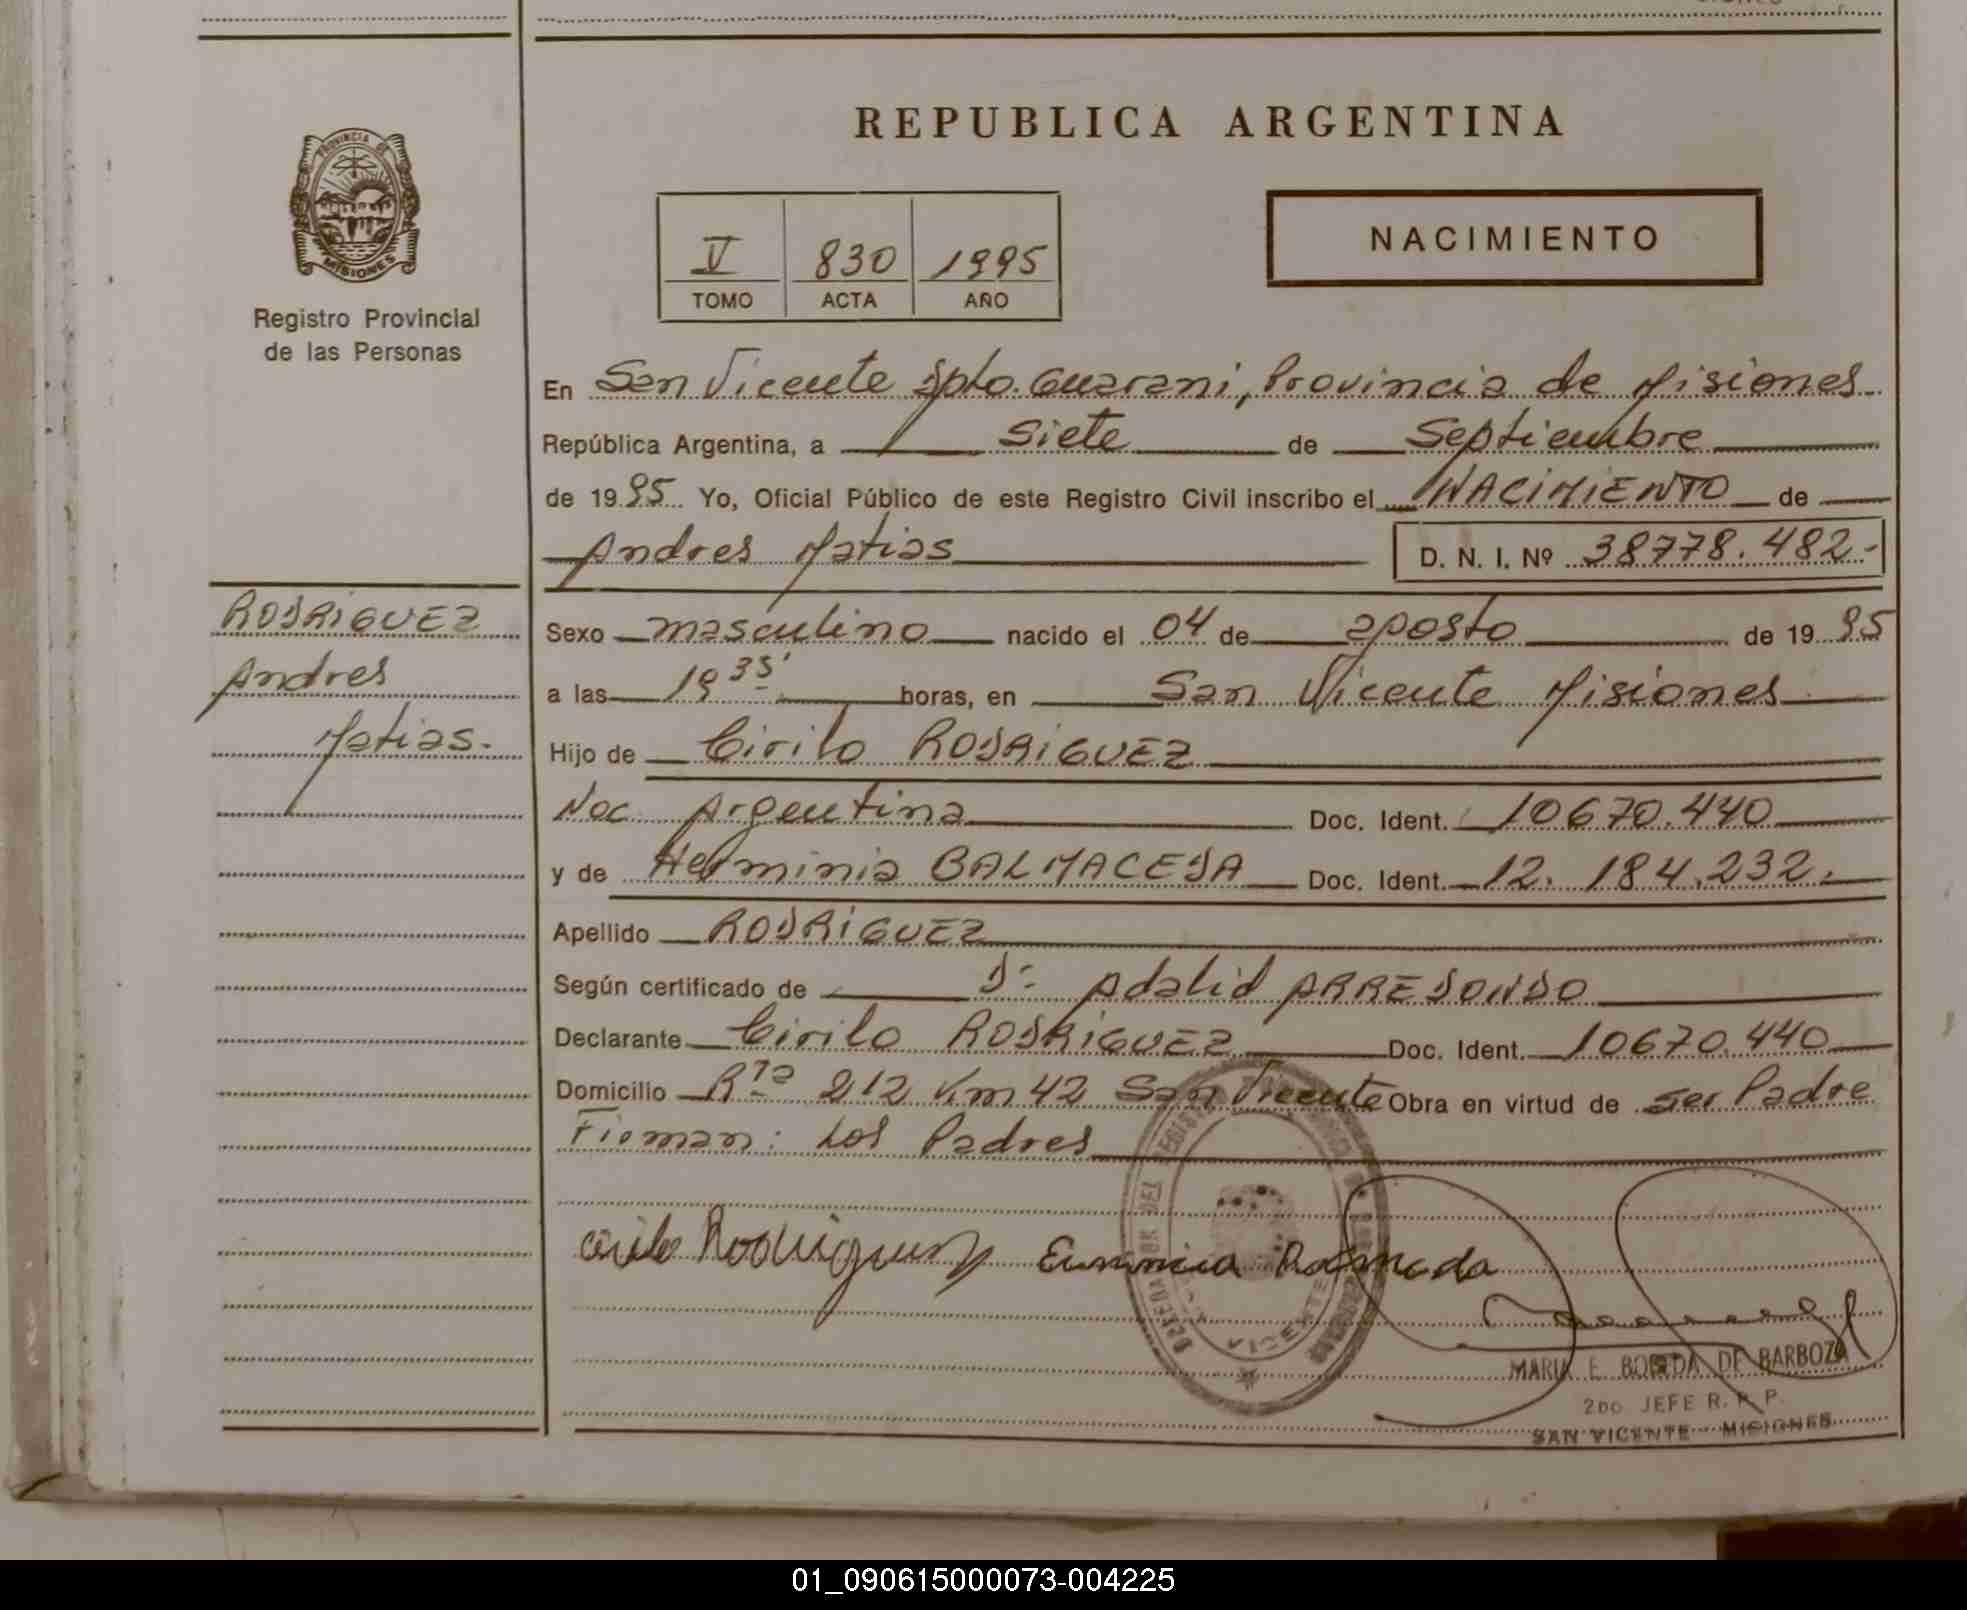 REPUBLICA ARGENTINA
PROVINCIA DE
MISIONES
Registro Provincial
de las Personas
V 830 1995
TOMO ACTA AÑO
NACIMIENTO
En San Vicente Dpto. Guarani, Provincia de Misiones
República Argentina, a Siete de Septiembre
de 1995 Yo, Oficial Público de este Registro Civil inscribo el NACIMIENTO de
Andres Matias D. N. I. Nº 38778.482.-
RODRIGUEZ
Andres
Matias.-
Sexo masculino nacido el 04 de agosto de 1995
a las 19 35' horas, en San Vicente Misiones
Hijo de Cirilo RODRIGUEZ
Nac. Argentina Doc. Ident. 10670.440
y de Herminia BALMACEDA Doc. Ident. 12.184.232.
Apellido RODRIGUEZ
Según certificado de Dr. Adalid ARREDONDO
Declarante Cirilo RODRIGUEZ Doc. Ident. 10670.440
Domicilio Rta 212 Km 42 San Vicente Obra en virtud de ser Padre
Firman: Los Padres
Cirilo Rodriguez
VICENTE
MARIA E. BORDA DE BARBOZA
2DO JEFE R. P. P.
SAN VICENTE - MISIONES
01_090615000073-004225